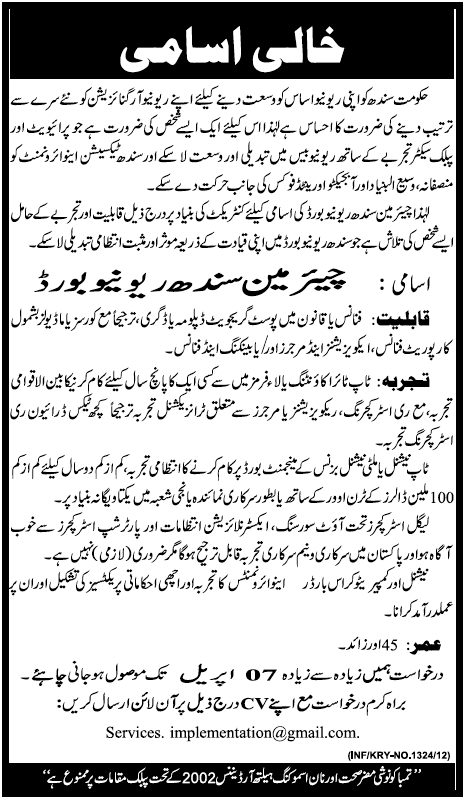 خالی اسامی
حکومت سندھ کو اپنی ریونیو اساس کو وسعت دینے کیلئے اپنے ریونیو آرگنائزیشن کو نئے سرے سے
ترتیب دینے کی ضرورت کا احساس ہے لہٰذا اس کیلئے ایک ایسے شخص کی ضرورت ہے جو پرائیویٹ اور
پبلک سیکٹر تجربے کے ساتھ ریونیو بیس میں تبدیلی اور وسعت لاسکے اور سندھ ٹیکسیشن انوائرونمنٹ کو
منصفانہ، وسیع البنیاد اور آبجیکٹو اورینٹڈ فوکس کی جانب حرکت دے سکے۔
لہٰذا چیئرمین سندھ ریونیو بورڈ کی اسامی کیلئے کنٹریکٹ کی بنیاد پر درج ذیل قابلیت اور تجربے کے حامل
ایسے شخص کی تلاش ہے جو سندھ ریونیو بورڈ میں اپنی قیادت کے ذریعہ موثر اور مثبت انتظامی تبدیلی لاسکے۔
اسامی : چیئرمین سندھ ریونیو بورڈ
قابلیت: فنانس یا قانون میں پوسٹ گریجویٹ ڈپلومہ یا ڈگری، ترجیحاً مع کورسز یا ماڈیولز بشمول
کارپوریٹ فنانس، ایکویزیشنز اینڈ مرجرز اور/یا بینکنگ اینڈ فنانس۔
تجربہ: ٹاپ ٹائر اکاؤنٹنگ یا لاء فرمز میں سے کسی ایک کا پانچ سال کیلئے کام کرنیکا بین الاقوامی
تجربہ، مع ری اسٹرکچرنگ، ریکویزیشنز یا مرجرز سے متعلق ٹرانزیکشنل تجربہ ترجیحاً کچھ ٹیکس ڈرائیون ری
اسٹرکچرنگ تجربہ۔
ٹاپ نیشنل یا ملٹی نیشنل بزنس کے مینجمنٹ بورڈ پر کام کرنے کا انتظامی تجربہ، کم از کم دو سال کیلئے کم از کم
100 ملین ڈالرز کے ٹرن اوور کے ساتھ یا بطور سرکاری نمائندہ یا نجی شعبہ میں یکتا و یگانہ بنیاد پر۔
لیگل اسٹرکچرز تحت آؤٹ سورسنگ، ایکسٹرنلائزیشن انتظامات اور پارٹنرشپ اسٹرکچرز سے خوب
آگاہ ہو اور پاکستان میں سرکاری و نیم سرکاری تجربہ قابل ترجیح ہوگا مگر ضروری (لازمی) نہیں ہے۔
نیشنل اور کمپیریٹو کراس بارڈر انوائرونمنٹس کا تجربہ اور اچھی احکاماتی پریکٹسیز کی تشکیل اور ان پر
عملدرآمد کرانا۔
عمر: 45 اور زائد۔
درخواست ہمیں زیادہ سے زیادہ 07 اپریل تک موصول ہوجانی چاہئے۔
براہ کرم درخواست مع اپنے CV درج ذیل پر آن لائن ارسال کریں:
Services. implementation@gmail.com.
(INF/KRY-NO.1324/12)
"تمباکو نوشی مضر صحت اور نان اسموکنگ ہیلتھ آرڈیننس 2002 کے تحت پبلک مقامات پر ممنوع ہے"